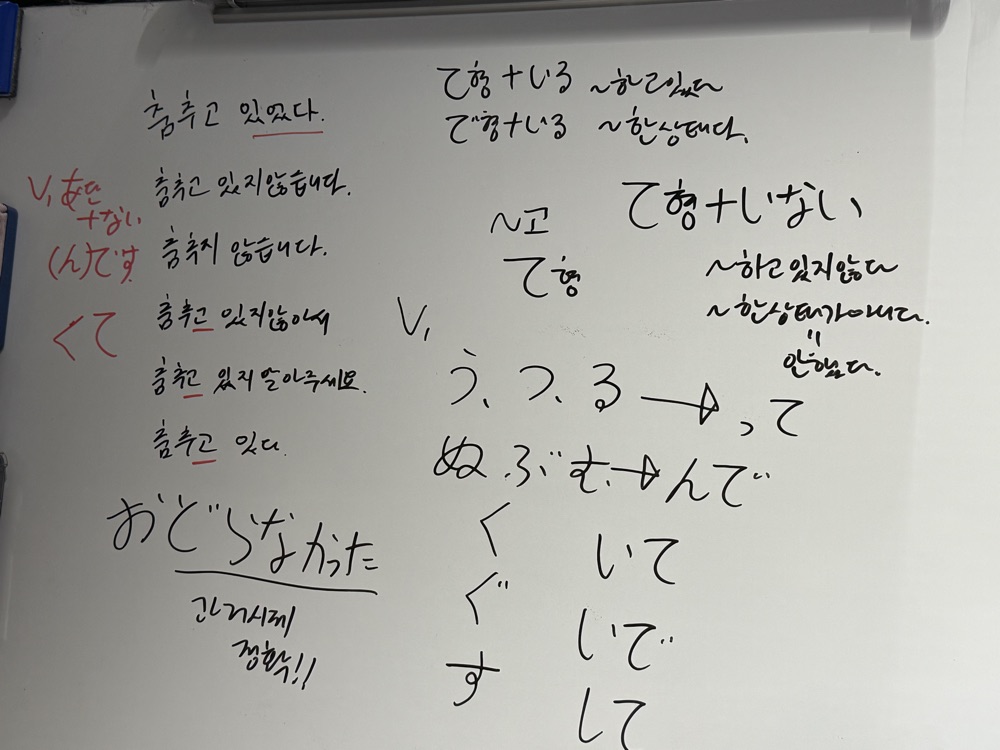 춤추고 있었다.
춤추고 있지않습니다.
춤추지 않습니다.
춤추고 있지않아서
춤추고 있지 말아주세요.
춤추고 있다.
V, あ단
+ない
(ん)です
くて
おどらなかった
과거시제
정확!!
て형+いる ~하고있다
で형+いる ~한상태다.
~고
て형
て형+いない
~하고있지않다
~한상태가아니다.
=
안했다.
V,
う、つ、る → って
ぬ.ぶ む. → んで
く いて
ぐ いで
す して